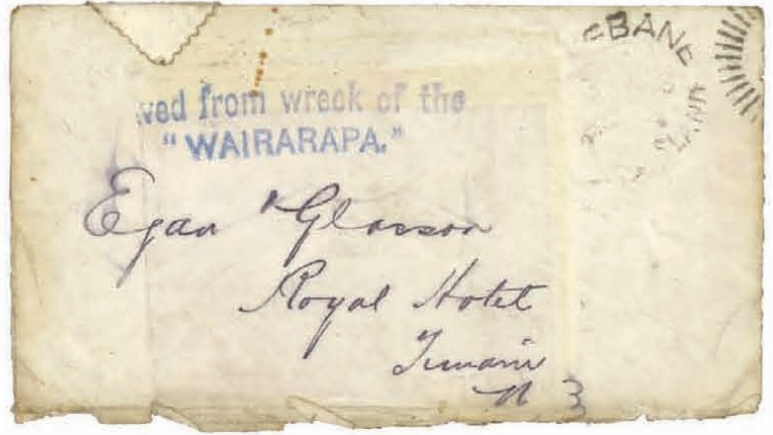 CBANE
LAND
ved from wreck of the
"WAIRARAPA."
Egan & Glasson
Royal Hotel
Timaru
N Z